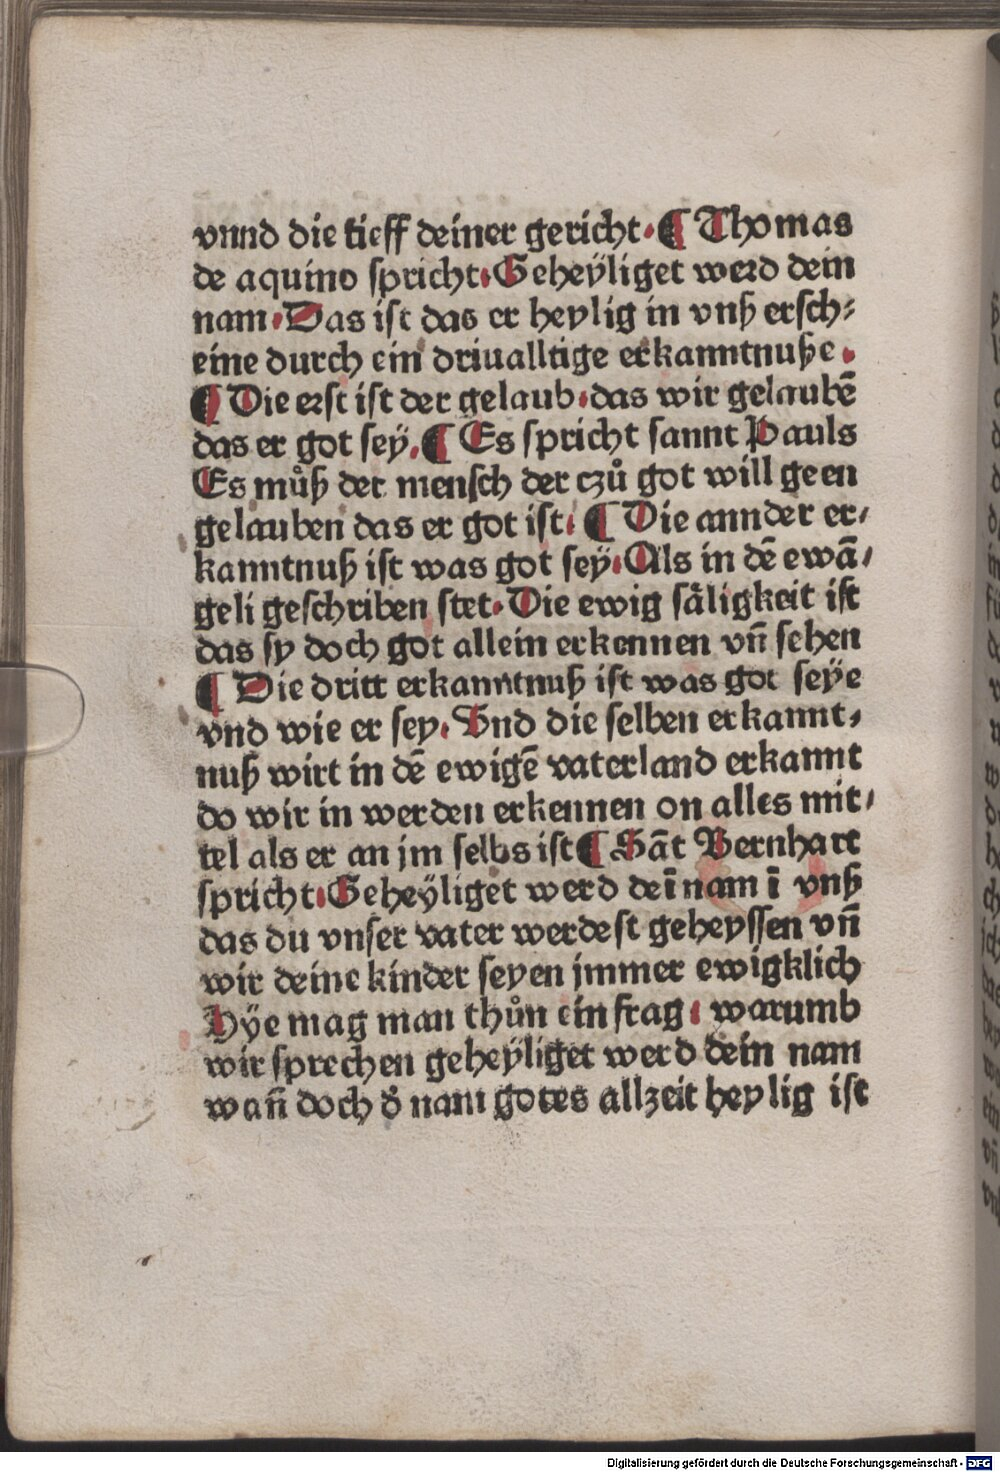 vnnd die tieff deiner gericht. ¶ Thomas
de aquino spricht. Geheÿliget werd dein
nam. Das ist das er heylig in vnß ersch⸗
eine durch ein driualltige erkanntnuße.
¶ Die erst ist der gelaub. das wir gelaubē
das er got seÿ. ¶ Es spricht sannt Pauls
Es můß der mensch der czů got will geen
gelauben das er got ist. ¶ Die annder er⸗
kanntnuß ist was got seÿ. Als in dē ewā⸗
geli geschriben stet. Die ewig säligkeit ist
das sy doch got allein erkennen vñ sehen
¶ Die dritt erkanntnuß ist was got seÿe
vnd wie er sey. Vnd die selben erkannt⸗
nuß wirt in dē ewigē vaterland erkannt
do wir in werden erkennen on alles mit⸗
tel als er an jm selbs ist ¶ Sāt Bernhart
spricht. Geheÿliget werd deī nam ī vnß
das du vnser vater werdest geheyssen vñ
wir deine kinder seyen jmmer ewigklich
Hÿe mag man thůn ein frag. warumb
wir sprechen geheÿliget werd dein nam
wañ doch d̕ nam gotes allzeit heylig ist
Digitalisierung gefördert durch die Deutsche Forschungsgemeinschaft - DFG